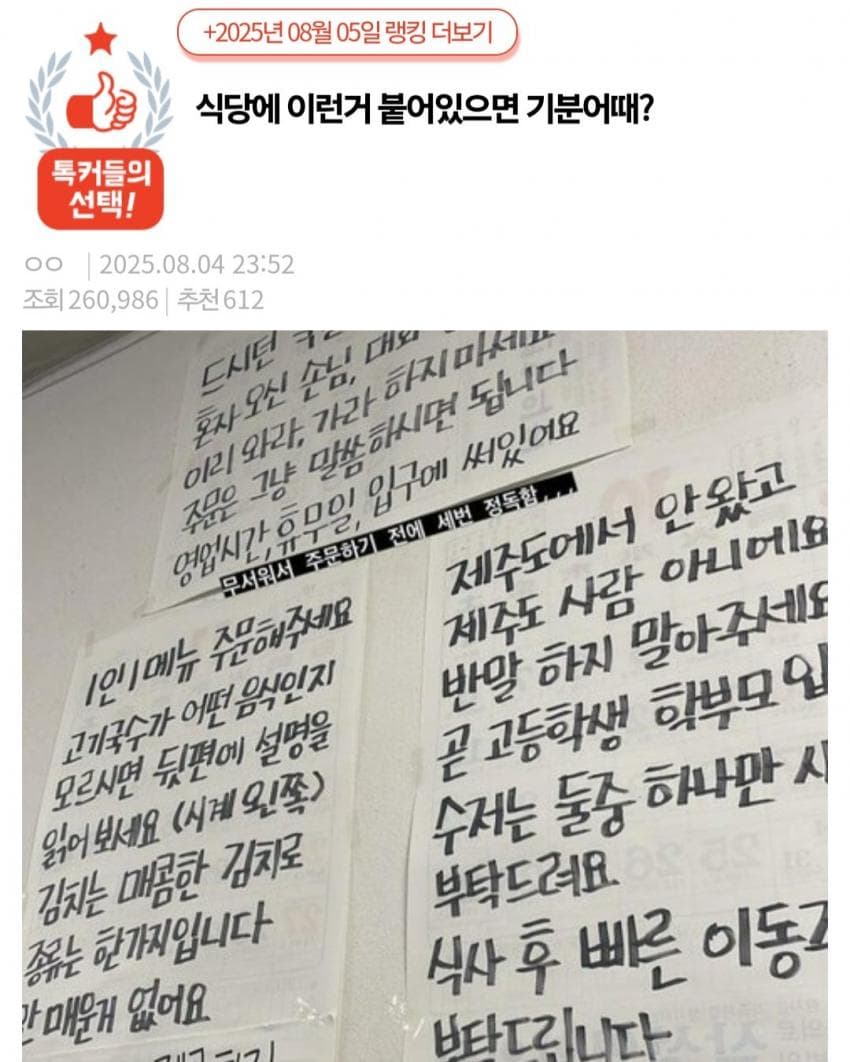 +2025년 08월 05일 랭킹 더보기
톡커들의
선택!
식당에 이런거 붙어있으면 기분어때?
ㅇㅇ | 2025.08.04 23:52
조회 260,986 | 추천 612
드시던
혼자 오신 손님, 대화
이리 와라, 가라 하지마세요
주문은 그냥 말씀하시면 됩니다
영업시간, 휴무일, 입구에 써있어요
무서워서 주문하기 전에 세번 정독함...
1인 1메뉴 주문해주세요
고기국수가 어떤 음식인지
모르시면 뒷편에 설명을
읽어보세요 (시계 왼쪽)
김치는 매콤한 김치로
종류는 한가지입니다
안 매운게 없어요
제주도에서 안 왔고
제주도 사람 아니에요
반말 하지 말아주세요
곧 고등학생 학부모
수저는 둘중 하나만
부탁드려요
식사 후 빠른 이동
부탁드립니다
25 26